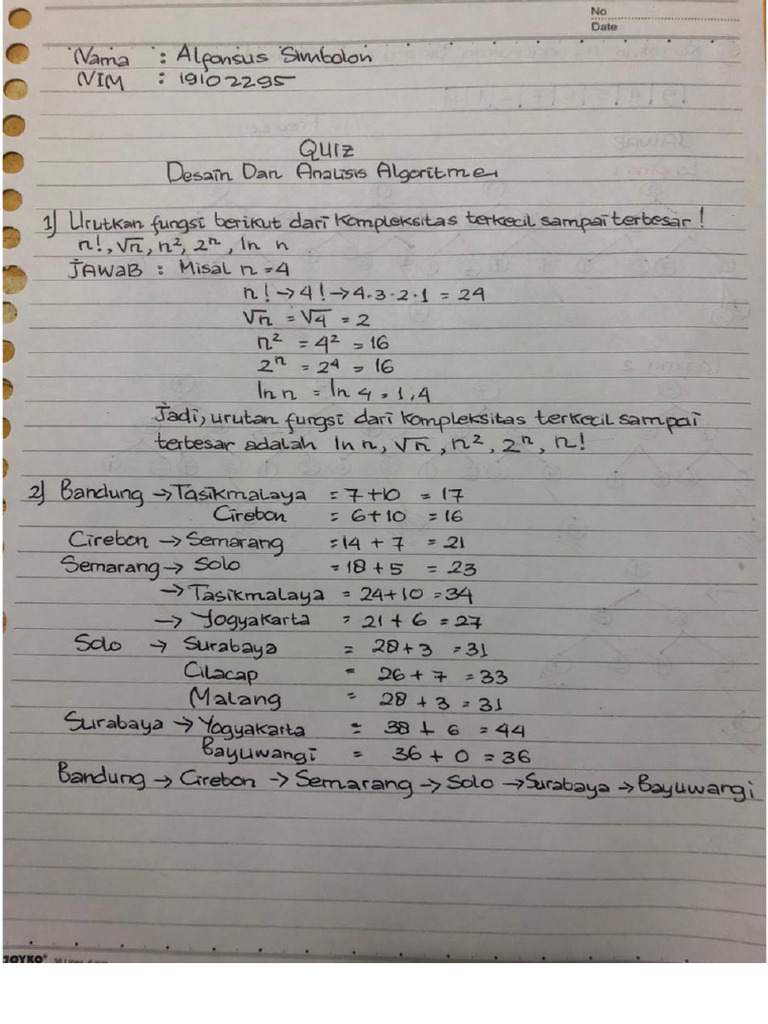 No
Date
Nama : Alfonsus Simbolon
NIM : 19102295
QUIZ
Desain Dan Analisis Algoritme
1) Urutkan fungsi berikut dari kompleksitas terkecil sampai terbesar !
n!, √n, n², 2ⁿ, ln n
JAWAB : Misal n = 4
n! → 4! → 4·3·2·1 = 24
√n = √4 = 2
n² = 4² = 16
2ⁿ = 2⁴ = 16
ln n = ln 4 = 1,4
Jadi, urutan fungsi dari kompleksitas terkecil sampai
terbesar adalah ln n, √n, n², 2ⁿ, n!
2) Bandung → Tasikmalaya = 7+10 = 17
Cirebon = 6+10 = 16
Cirebon → Semarang = 14 + 7 = 21
Semarang → Solo = 18+5 = 23
→ Tasikmalaya = 24+10 = 34
→ Yogyakarta = 21 + 6 = 27
Solo → Surabaya = 28+3 = 31
Cilacap = 26 + 7 = 33
Malang = 28 + 3 = 31
Surabaya → Yogyakarta = 38 + 6 = 44
Bayuwangi = 36 + 0 = 36
Bandung → Cirebon → Semarang → Solo → Surabaya → Bayuwangi
JOYKO